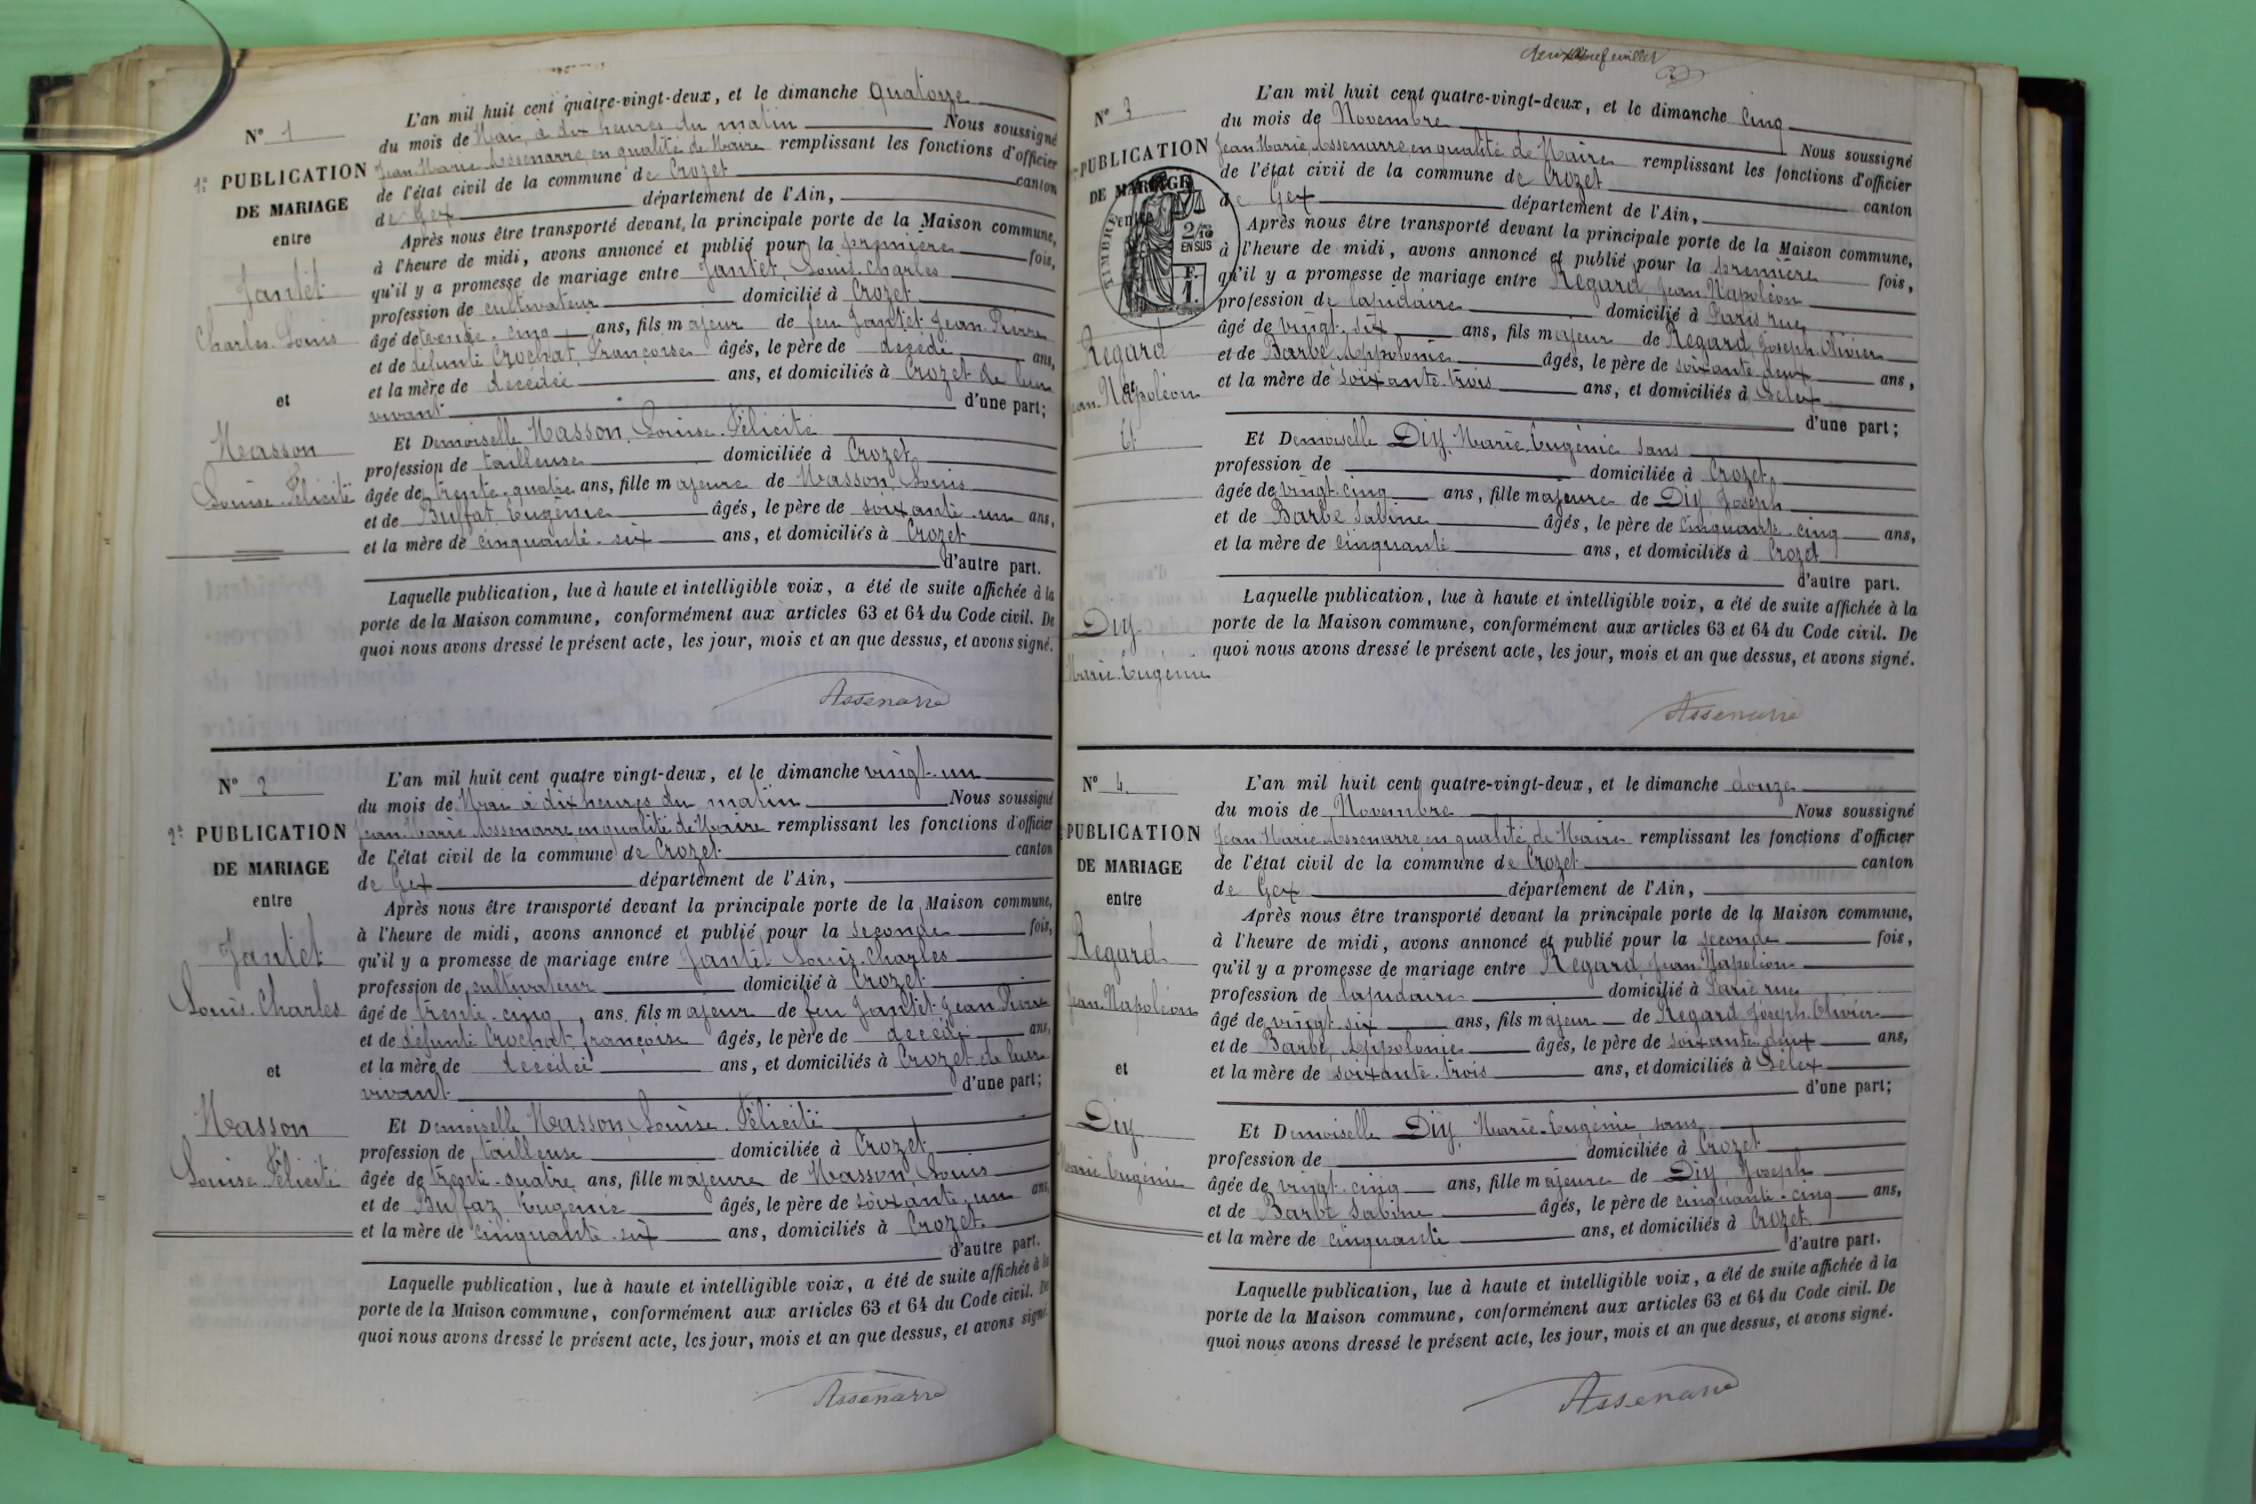 N° 1
1re PUBLICATION
DE MARIAGE
entre
Jantet
Charles Louis
et
Masson
Louise Félicité
L'an mil huit cent quatre-vingt-deux, et le dimanche quatorze
du mois de Mai, à dix heures du matin Nous soussigné
Jean Marie Assenarre, en qualité de Maire remplissant les fonctions d'officier
de l'état civil de la commune de Crozet canton
de Gex département de l'Ain,
Après nous être transporté devant la principale porte de la Maison commune,
à l'heure de midi, avons annoncé et publié pour la première fois,
qu'il y a promesse de mariage entre Jantet, Louis Charles
profession de cultivateur domicilié à Crozet
âgé de trente-cinq ans, fils majeur de feu Jantet Jean Pierre
et de défunte Crochat, Françoise âgés, le père de décédé ans,
et la mère de décédée ans, et domiciliés à Crozet de leur
vivant d'une part;
Et Demoiselle Masson, Louise Félicité
profession de tailleuse domiciliée à Crozet
âgée de trente-quatre ans, fille majeure de Masson, Louis
et de Buffat, Eugénie âgés, le père de soixante-un ans,
et la mère de cinquante-six ans, et domiciliés à Crozet
d'autre part.
Laquelle publication, lue à haute et intelligible voix, a été de suite affichée à la
porte de la Maison commune, conformément aux articles 63 et 64 du Code civil. De
quoi nous avons dressé le présent acte, les jour, mois et an que dessus, et avons signé.
Assenarre
N° 2
2e PUBLICATION
DE MARIAGE
entre
Jantet
Louis Charles
et
Masson
Louise Félicité
L'an mil huit cent quatre vingt-deux, et le dimanche vingt-un
du mois de Mai à dix heures du matin Nous soussigné
Jean Marie Assenarre, en qualité de Maire remplissant les fonctions d'officier
de l'état civil de la commune de Crozet canton
de Gex département de l'Ain,
Après nous être transporté devant la principale porte de la Maison commune,
à l'heure de midi, avons annoncé et publié pour la seconde fois,
qu'il y a promesse de mariage entre Jantet Louis Charles
profession de cultivateur domicilié à Crozet
âgé de trente-cinq, ans, fils majeur de feu Jantet Jean Pierre
et de défunte Crochat françoise âgés, le père de décédé ans,
et la mère de décédée ans, et domiciliés à Crozet de leur
vivant d'une part;
Et Demoiselle Masson, Louise Félicité
profession de tailleuse domiciliée à Crozet
âgée de trente-quatre ans, fille majeure de Masson, Louis
et de Buffaz Eugénie âgés, le père de soixante-un ans,
et la mère de cinquante-six ans, domiciliés à Crozet
d'autre part.
Laquelle publication, lue à haute et intelligible voix, a été de suite affichée à la
porte de la Maison commune, conformément aux articles 63 et 64 du Code civil. De
quoi nous avons dressé le présent acte, les jour, mois et an que dessus, et avons signé.
Assenarre
N° 3
PUBLICATION
DE MARIAGE
entre
TIMBRE
2/10
EN SUS
F.
1.
Regard
et
Jean Napoléon
Et
Diy
Marie Eugénie
L'an mil huit cent quatre-vingt-deux, et le dimanche cinq
du mois de Novembre Nous soussigné
Jean Marie, Assenarre, en qualité de Maire remplissant les fonctions d'officier
de l'état civil de la commune de Crozet canton
de Gex département de l'Ain,
Après nous être transporté devant la principale porte de la Maison commune,
à l'heure de midi, avons annoncé et publié pour la première fois,
qu'il y a promesse de mariage entre Regard, Jean Napoléon
profession de lapidaire domicilié à Paris rue
âgé de vingt-six ans, fils majeur de Regard, Joseph Olivier
et de Barbe, Appolonie âgés, le père de soixante deux ans,
et la mère de soixante-trois ans, et domiciliés à Lélex
d'une part;
Et Demoiselle Diy, Marie Eugénie sans
profession de domiciliée à Crozet
âgée de vingt-cinq ans, fille majeure de Diy, Joseph
et de Barbe Sabine âgés, le père de cinquante-cinq ans,
et la mère de cinquante ans, et domiciliés à Crozet
d'autre part.
Laquelle publication, lue à haute et intelligible voix, a été de suite affichée à la
porte de la Maison commune, conformément aux articles 63 et 64 du Code civil. De
quoi nous avons dressé le présent acte, les jour, mois et an que dessus, et avons signé.
Assenarre
N° 4
PUBLICATION
DE MARIAGE
entre
Regard
Jean Napoléon
et
Diy
Marie Eugénie
L'an mil huit cent quatre-vingt-deux, et le dimanche douze
du mois de Novembre Nous soussigné
Jean Marie Assenarre, en qualité de Maire remplissant les fonctions d'officier
de l'état civil de la commune de Crozet canton
de Gex département de l'Ain,
Après nous être transporté devant la principale porte de la Maison commune,
à l'heure de midi, avons annoncé et publié pour la seconde fois,
qu'il y a promesse de mariage entre Regard, Jean Napoléon
profession de lapidaire domicilié à Paris rue
âgé de vingt-six ans, fils majeur de Regard, Joseph Olivier
et de Barbe, Appolonie âgés, le père de soixante deux ans,
et la mère de soixante-trois ans, et domiciliés à Lélex
d'une part;
Et Demoiselle Diy, Marie-Eugénie, sans
profession de domiciliée à Crozet
âgée de vingt-cinq ans, fille majeure de Diy, Joseph
et de Barbe Sabine âgés, le père de cinquante-cinq ans,
et la mère de cinquante ans, et domiciliés à Crozet
d'autre part.
Laquelle publication, lue à haute et intelligible voix, a été de suite affichée à la
porte de la Maison commune, conformément aux articles 63 et 64 du Code civil. De
quoi nous avons dressé le présent acte, les jour, mois et an que dessus, et avons signé.
Assenarre